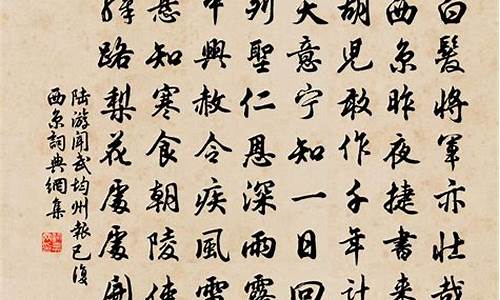 白髮將軍亦壯哉
西京昨夜捷書來
胡兒敢作千年計
天意寧知一日回
列聖仁恩深雨露
中興赦令疾風雷
懸知寒食朝陵使
驛路梨花處處開
陸游聞武均州報已復
西京詞典網集